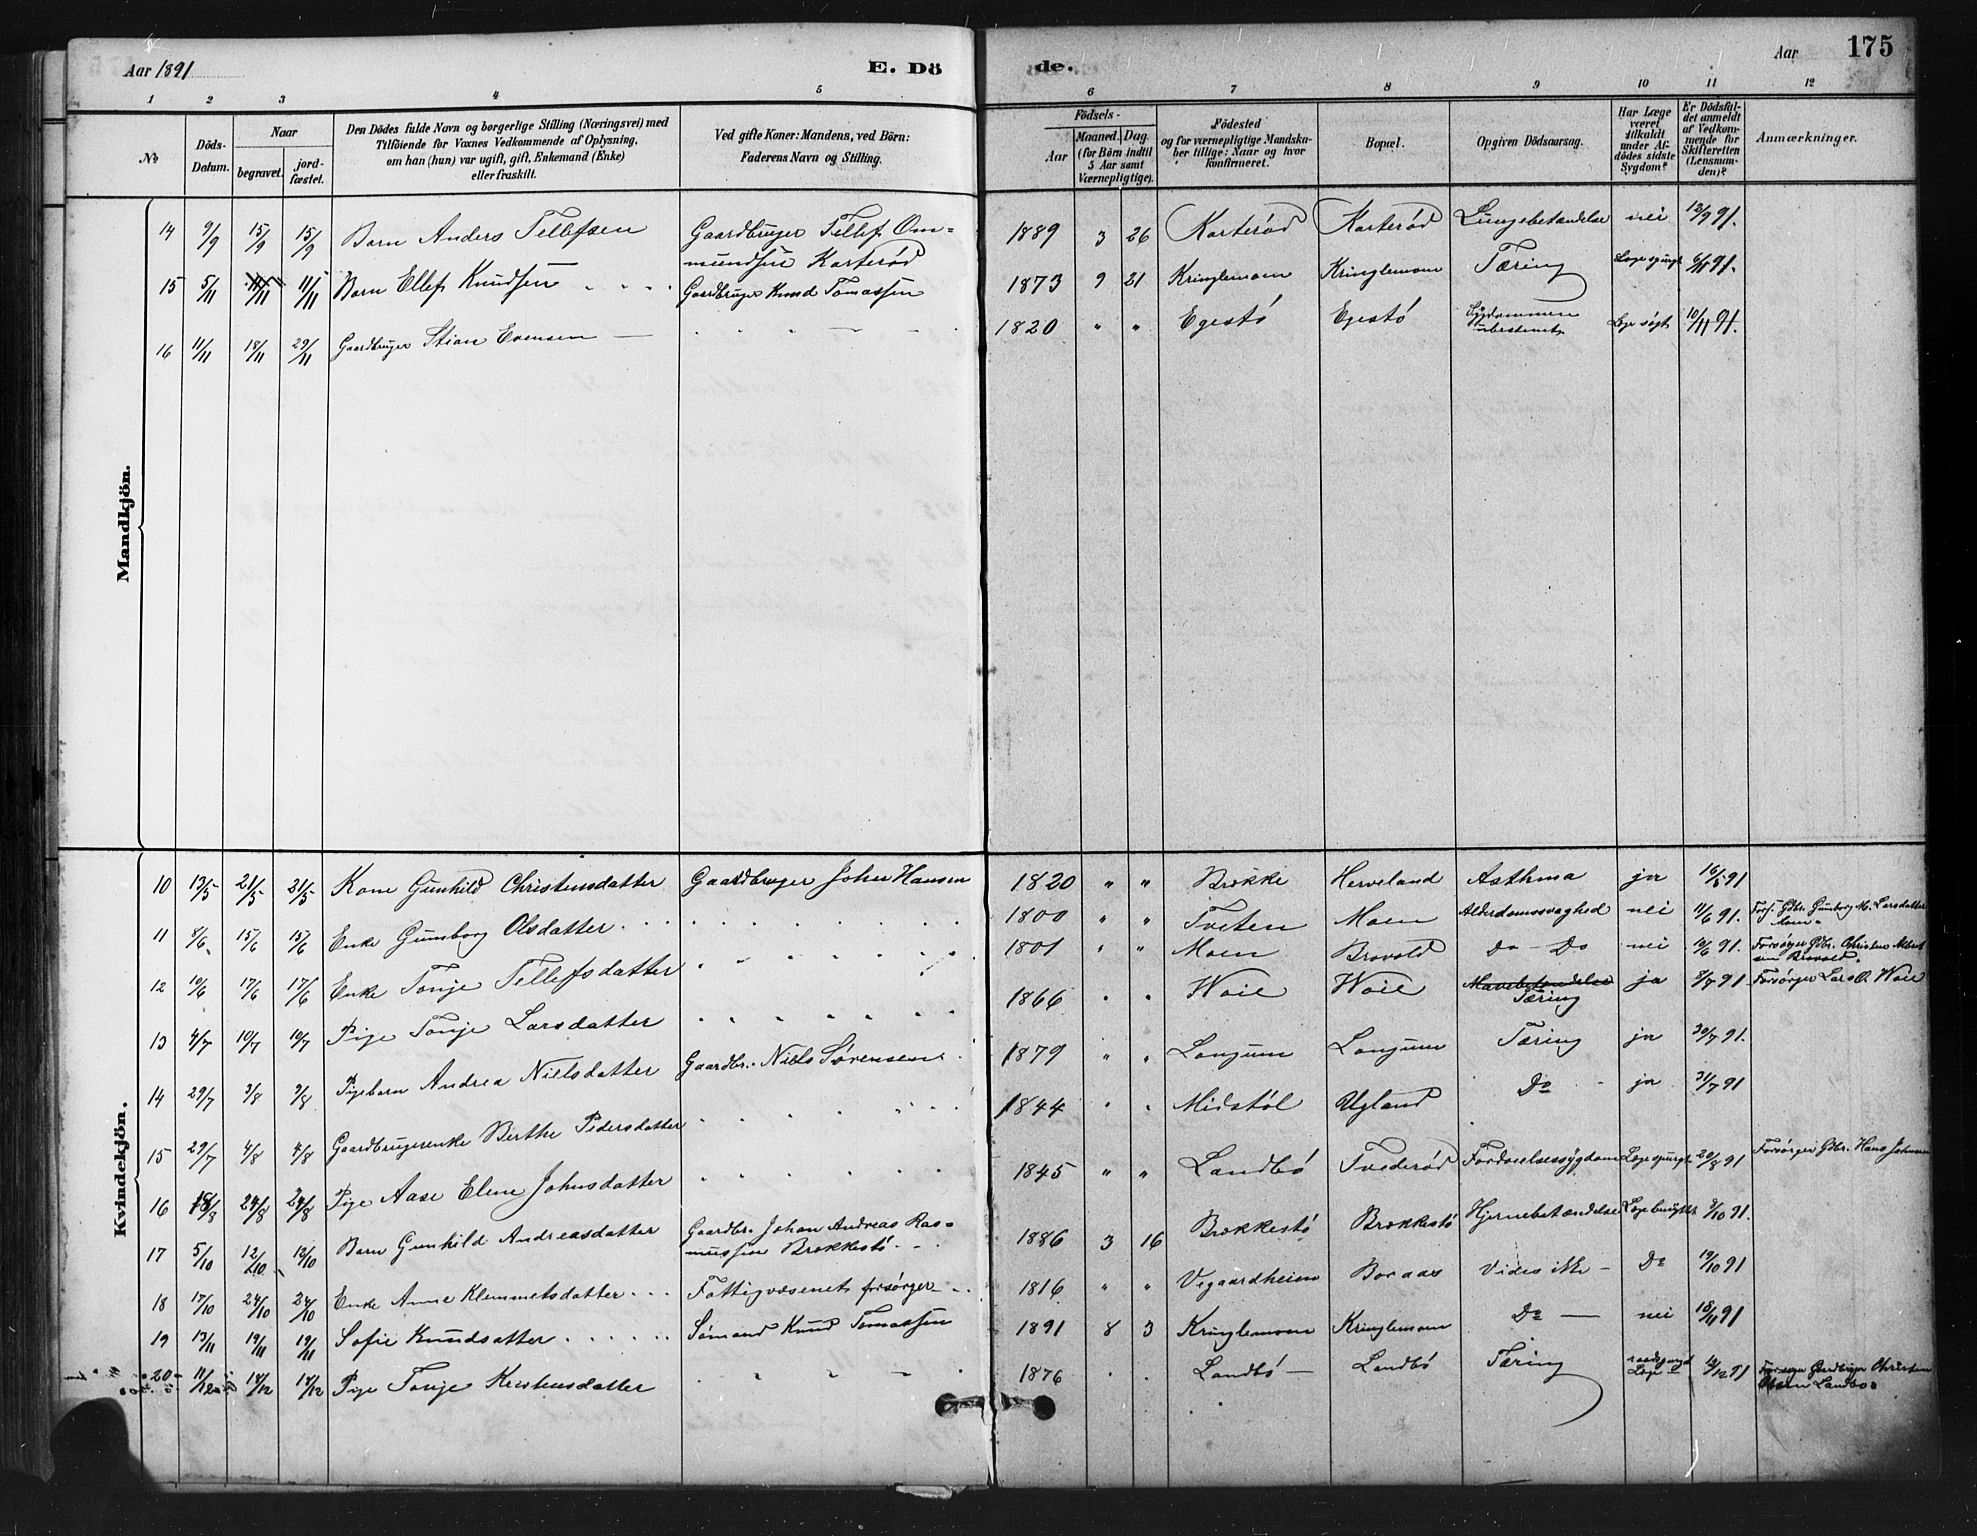 Aar 1891
E. Dö
de.
Aar
175
1 2 3 4 5 6 7 8 9 10 11 12
No
Döds-
Datum.
Naar
begravet.
jord-
fæstet.
Den Dödes fulde Navn og borgerlige Stilling (Næringsvei) med
Tilföiende for Voxnes Vedkommende af Oplysning,
om han (hun) var ugift, gift, Enkemand (Enke)
eller fraskilt.
Ved gifte Koner: Mandens, ved Börn:
Faderens Navn og Stilling.
Födsels-
Aar
Maaned. Dag.
(for Börn indtil
5 Aar samt
Værnepligtige).
Födested
og for værnepligtige Mandska-
ber tillige: Naar og hvor
konfirmeret.
Bopæl.
Opgiven Dödsaarsag.
Har Læge
været
tilkaldt
under Af-
dödes sidste
Sygdom?
Er Dödsfal-
det anmeldt
af Vedkom-
mende for
Skifteretten
(Lensman-
den)?
Anmærkninger.
Mandkjön.
14 9/9 15/9 15/9 Barn Anders Tellefsen Gaardbruger Tellef Om=
mundsen Karterød 1889 3 26 Karterød Karterød Lungebetændelse nei 12/9 91.
15 5/11 11/11 11/11 Barn Ellef Knudsen Gaardbruger Knud Tomassen 1873 9 21 Kringlemoen Kringlemoen Tæring Læge spurgt 6/11 91.
16 11/11 18/11 29/11 Gaardbruger Stian Evensen 1820 " " Egestø Egestø Sygdommen
ubestemt Læge søgt 10/11 91.
Kvindekjön.
10 13/5 21/5 21/5 Kone Gunhild Christensdatter Gaardbruger John Hansen 1820 " " Brække Herveland Asthma ja 16/5 91
11 8/6 15/6 15/6 Enke Gunborg Olsdatter 1800 " " Tveten Moen Alderdomssvaghed nei 11/6 91. Fors. Gdbr. Gunborg M. Larsdatter
Moen
12 10/6 17/6 17/6 Enke Tonje Tellefsdatter 1801 " " Moen Brovold Do - Do nei 12/6 91. Forsørger Gdbr. Christen
Brovold.
13 4/7 10/7 10/7 Pige Tonje Larsdatter 1866 " " Woie Woie Mavebetændelse
Tæring ja 8/7 91 Forsørger Lars O. Woie
14 29/7 3/8 3/8 Pigebarn Andrea Nielsdatter Gaardbr. Niels Sørensen 1879 " " Langum Langum Tæring ja 30/7 91.
15 29/7 4/8 4/8 Gaardbrugerenke Berthe Pedersdatter 1844 " " Midstøl Ugland Do ja 31/7 91
16 18/8 24/8 24/8 Pige Aase Elene Johnsdatter 1845 " " Landbø Tvederød Fordøielsessygdom Læge spurgt 20/8 91 Forsørger Gdbr. Hans Johnsen
17 5/10 12/10 12/10 Barn Gunhild Andreasdatter Gaardbr. Johan Andreas Ras=
mussen Brækkestø 1886 3 16 Brækkestø Brækkestø Hjernebetændelse Læge benyttet 9/10 91.
18 17/10 24/10 24/10 Enke Anne Klemmetsdatter Fattigvæsenet forsørger 1816 " " Vegaardheien Boraas Vides ikke Do 19/10 91
19 13/11 19/11 19/11 Sofie Knudsatter Sømand Knud Tomassen 1891 8 3 Kringlemoen Kringlemoen Do nei 18/11 91
20 11/12 18/12 18/12 Pige Tonje Kristensdatter 1876 Landbø Landbø Tæring raadspurgt
Læge 14/12 91 Forsørger Gaardbruger Christen
Olsen Landbø